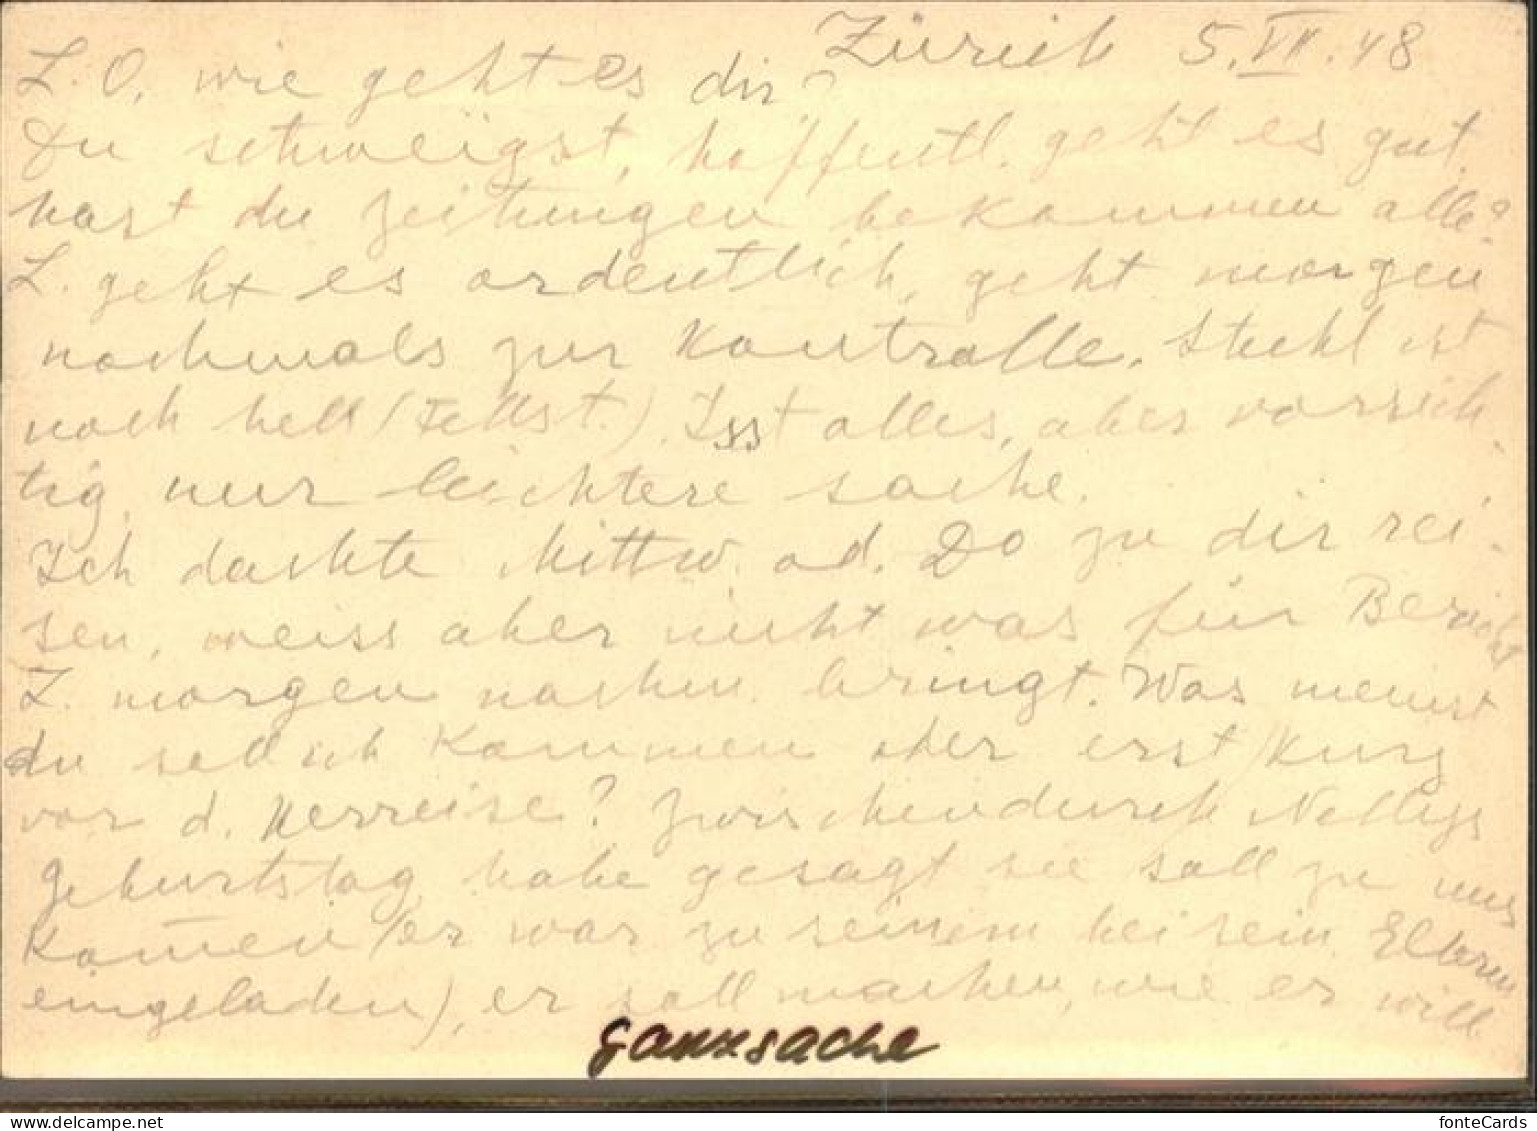 Zürich 5.VII.48
L. O. wie geht es dir?
Du schweigst, hoffentl. geht es gut,
hast du Zeitungen bekommen alle?
L. geht es ordentlich, geht morgen
nochmals zur Kontrolle. Stuhl ist
noch hell (selbst.). Isst alles, aber vorsich
tig, nur leichtere sache.
Ich dachte Mittw. od. Do zu dir rei-
sen, weiss aber nicht was für Bericht
L. morgen nachm. bringt. Was meinst
du soll ich kommen oder erst kurz
vor d. Herreise? Zwischendurch Nellys
Geburtstag, habe gesagt sie soll zu uns
kom̄en (er war zu seinem bei sein Eltern
eingeladen), er soll machen, wie er will
ganzsache
www.delcampe.net
fonteCards